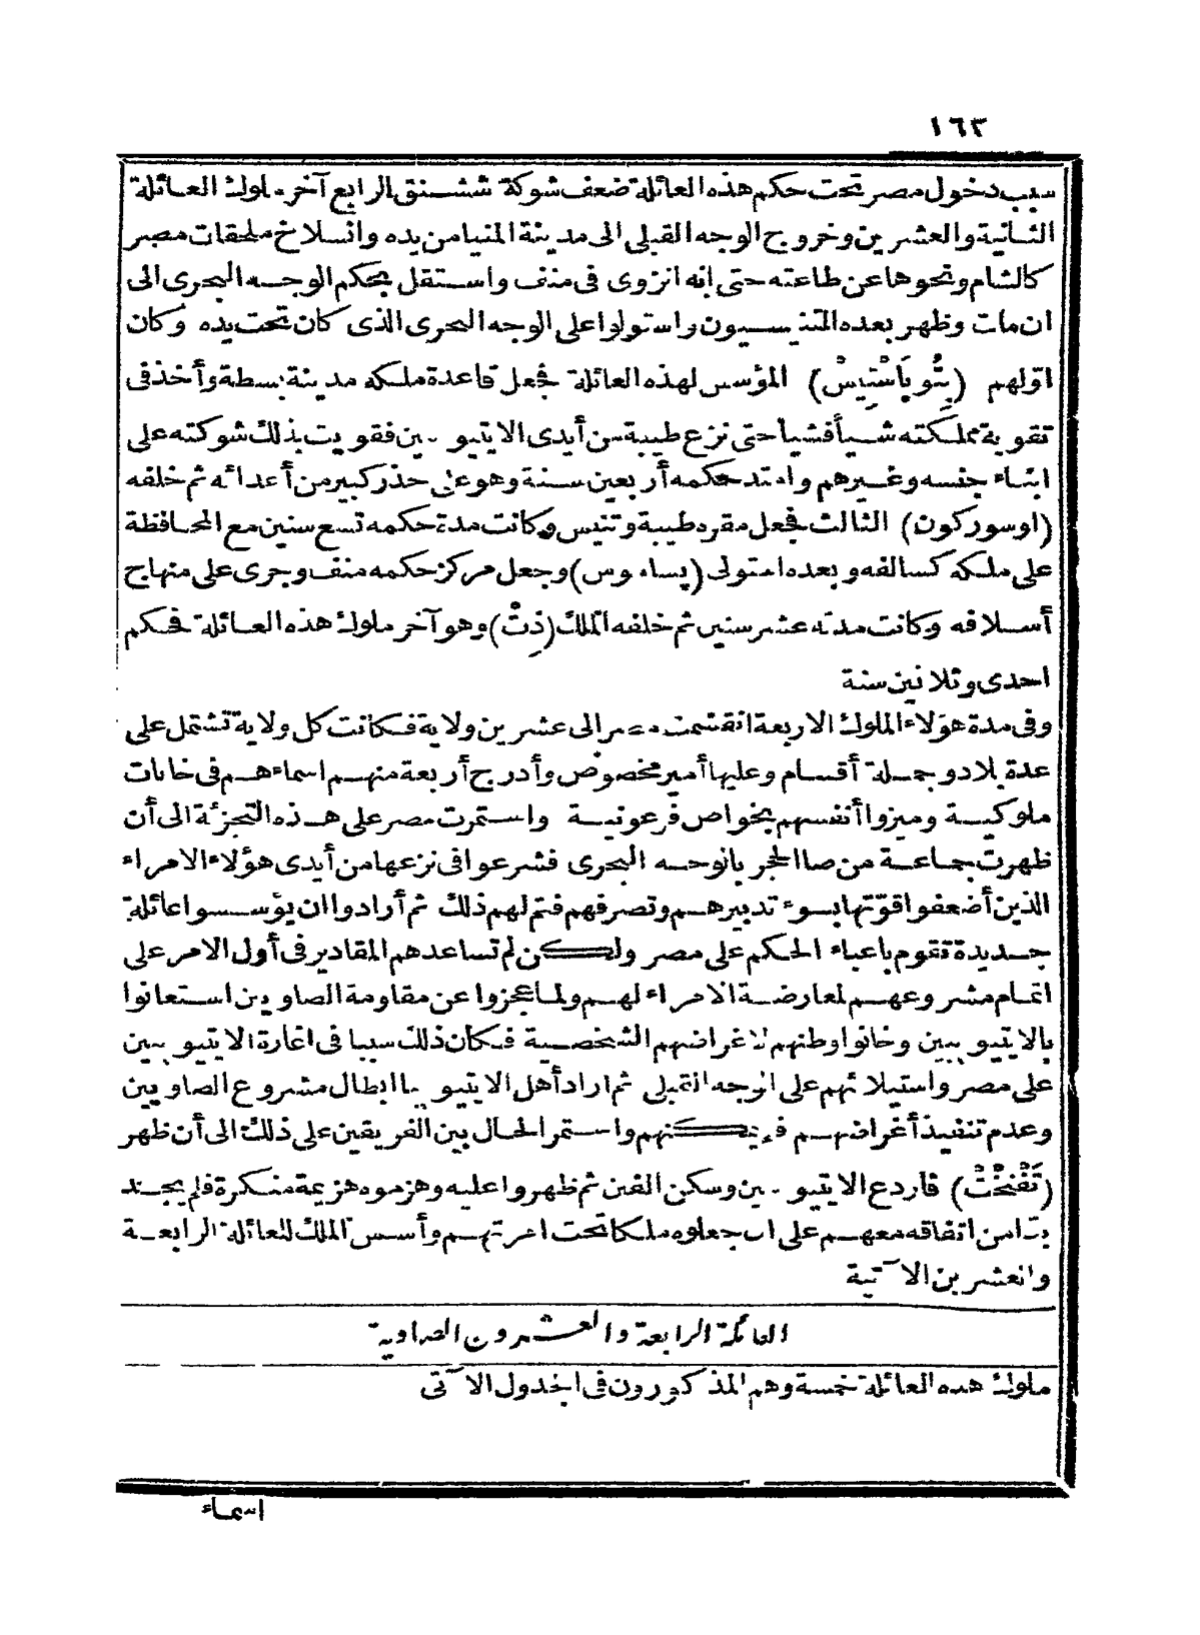 ١٦٣
سبب دخول مصر تحت حكم هذه العائلة ضعف شوكة ششنق الرابع آخر ملوك العائلة
الثانية والعشرين وخروج الوجه القبلى الى مدينة المنيا من يده وانسلاخ ملحقات مصر
كالشام ونحوها عن طاعته حتى إنه انزوى فى منف واستقل بحكم الوجه البحرى الى
ان مات وظهر بعده التنيسيون واستولوا على الوجه البحرى الذى كان تحت يده وكان
اوّلهم (بِتُوبَاسْتِيسْ) المؤسس لهذه العائلة فجعل قاعدة ملكه مدينة بسطة وأخذ فى
تقوية مملكته شيأ فشيا حتى نزع طيبة من أيدى الايتيوبيين فقويت بذلك شوكته على
ابناء جنسه وغيرهم وامتد حكمه أربعين سنة وهو على حذر كبير من أعدائه ثم خلفه
(اوسوركون) الثالث فجعل مقره طيبة وتنيس وكانت مدة حكمه تسع سنين مع المحافظة
على ملكه كسالفه وبعده استولى (پساموس) وجعل مركز حكمه منف وجرى على منهاج
أسلافه وكانت مدته عشر سنين ثم خلفه الملك (ذِتْ) وهو آخر ملوك هذه العائلة فحكم
احدى وثلاثين سنة
وفى مدة هؤلاء الملوك الاربعة انقسمت مصر الى عشرين ولاية فكانت كل ولاية تشتمل على
عدة بلاد وجملة أقسام وعليها أمير مخصوص وأدرج أربعة منهم اسماءهم فى خانات
ملوكية وميزوا أنفسهم بخواص فرعونية واستمرت مصر على هذه التجزئة الى أن
ظهرت جماعة من صا الحجر بالوجه البحرى فشرعوا فى نزعها من أيدى هؤلاء الامراء
الذين أضعفوا قوّتها بسوء تدبيرهم وتصرفهم فتم لهم ذلك ثم أرادوا ان يؤسسوا عائلة
جديدة تقوم باعباء الحكم على مصر ولكن لم تساعدهم المقادير فى أول الامر على
اتمام مشروعهم لمعارضة الامراء لهم ولما عجزوا عن مقاومة الصاويين استعانوا
بالايتيوبيين وخانوا وطنهم لاغراضهم الشخصية فكان ذلك سببا فى اغارة الايتيوبيين
على مصر واستيلائهم على الوجه القبلى ثم اراد أهل الايتيوبيا ابطال مشروع الصاويين
وعدم تنفيذ أغراضهم فلم يمكنهم واستمر الحال بين الفريقين على ذلك الى أن ظهر
(تَفْنِخْتْ) فاردع الايتيوبيين وسكن الفتن ثم ظهروا عليه وهزموه هزيمة منكرة فلم يجد
بدّا من اتفاقه معهم على ان جعلوه ملكا تحت امرتهم وأسس الملك للعائلة الرابعة
والعشرين الآتية
العائلة الرابعة والعشرون الصاوية
ملوك هذه العائلة خمسة وهم المذكورون فى الجدول الآتى
اسماء